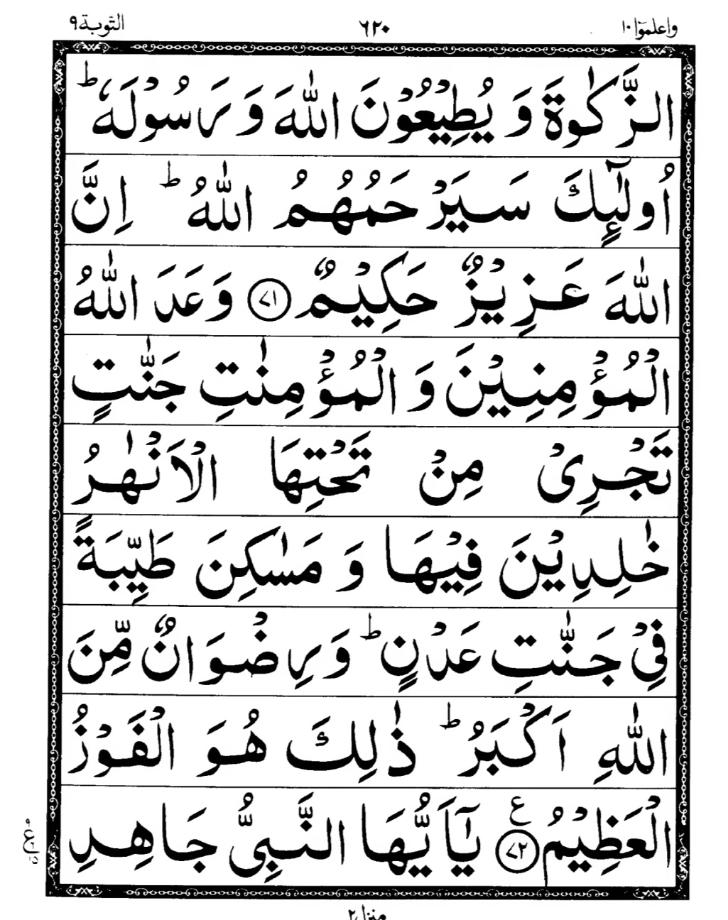 واعلموۤا ۱۰ ۶۲۰ التوبة ۹
الزَّكٰوةَ وَ يُطِيْعُوْنَ اللّٰهَ وَ رَسُوْلَهٗ ؕ
اُولٰٓئِكَ سَيَرْحَمُهُمُ اللّٰهُ ؕ اِنَّ
اللّٰهَ عَزِيْزٌ حَكِيْمٌ ﴿۷۱﴾ وَعَدَ اللّٰهُ
الْمُؤْمِنِيْنَ وَ الْمُؤْمِنٰتِ جَنّٰتٍ
تَجْرِيْ مِنْ تَحْتِهَا الْاَنْهٰرُ
خٰلِدِيْنَ فِيْهَا وَ مَسٰكِنَ طَيِّبَةً
فِيْ جَنّٰتِ عَدْنٍ ؕ وَ رِضْوَانٌ مِّنَ
اللّٰهِ اَكْبَرُ ؕ ذٰلِكَ هُوَ الْفَوْزُ
الْعَظِيْمُ ﴿۷۲﴾ ع يٰۤاَيُّهَا النَّبِيُّ جَاهِدِ
منزل ۲